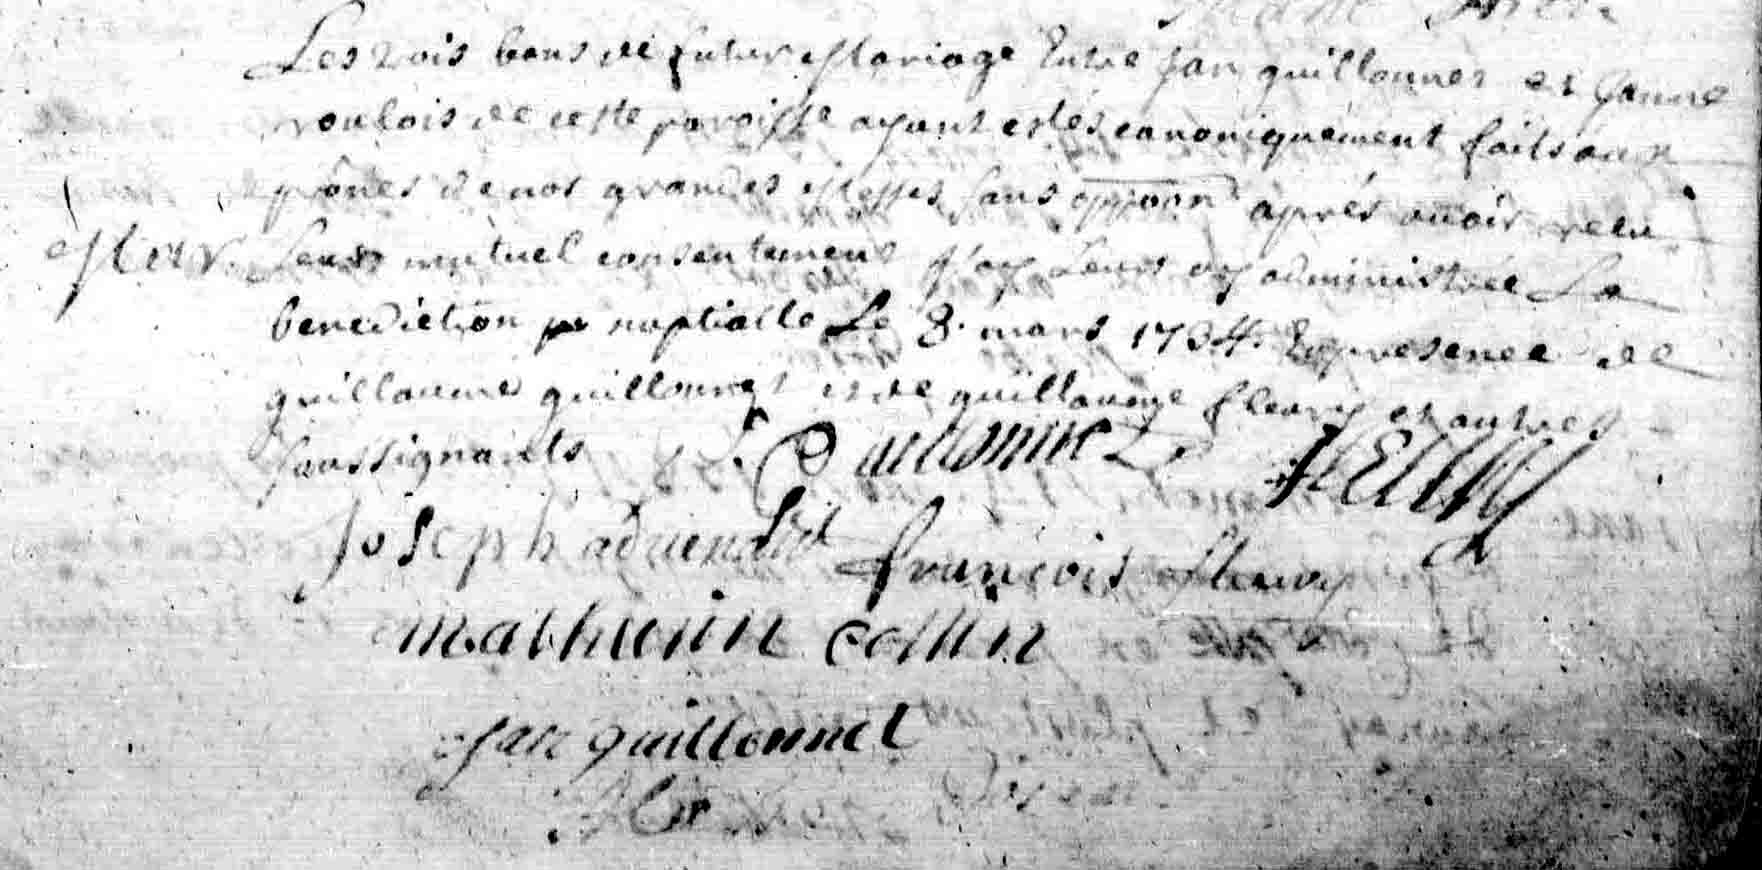 Les trois bans de futur Mariage Entre Jan guillonnet et Janne
de cette paroisse ayant estés canoniquement faits aux
prônes de nos grandes Messes sans oppoon aprés avoir receu
Mar. Leur mutuel consentement J'ay Leurs ay administrée La
benediction nuptialle Le 8. mars 1734. En presence de
guillaume guillonnet et de guillaume fleury et autres
soussignants G Guillonnet fleury
Joseph françois fleury
mathurin collin
Jan guillonnet